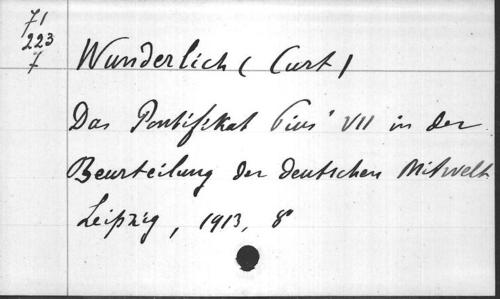 71
223
7
Wunderlich (Curt)
Das Pontifikat Pius' VII in der
Beurteilung der deutschen Mitwelt
Leipzig, 1913, 8°